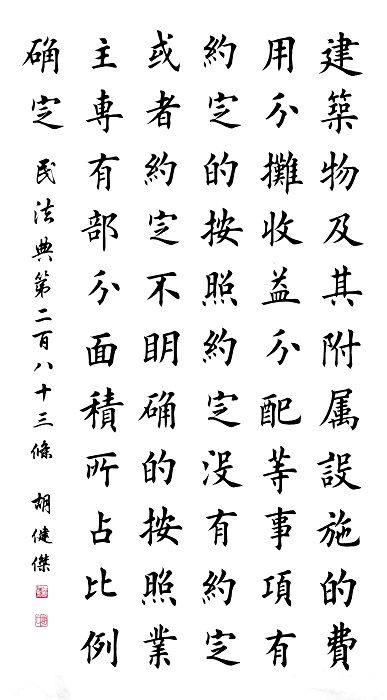 建築物及其附属設施的費
用分攤收益分配等事項有
約定的按照約定没有約定
或者約定不眀确的按照業
主專有部分面積所占比例
确定 民法典第二百八十三條 胡健傑